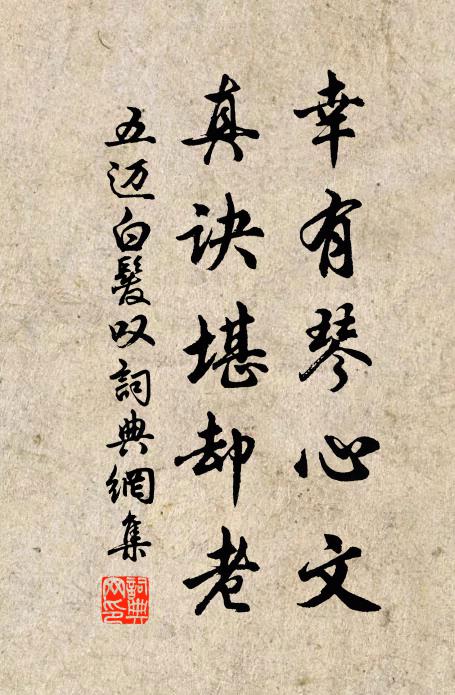 幸有琴心文
真诀堪却老
五迈白髮叹詞典網集
詞典網印